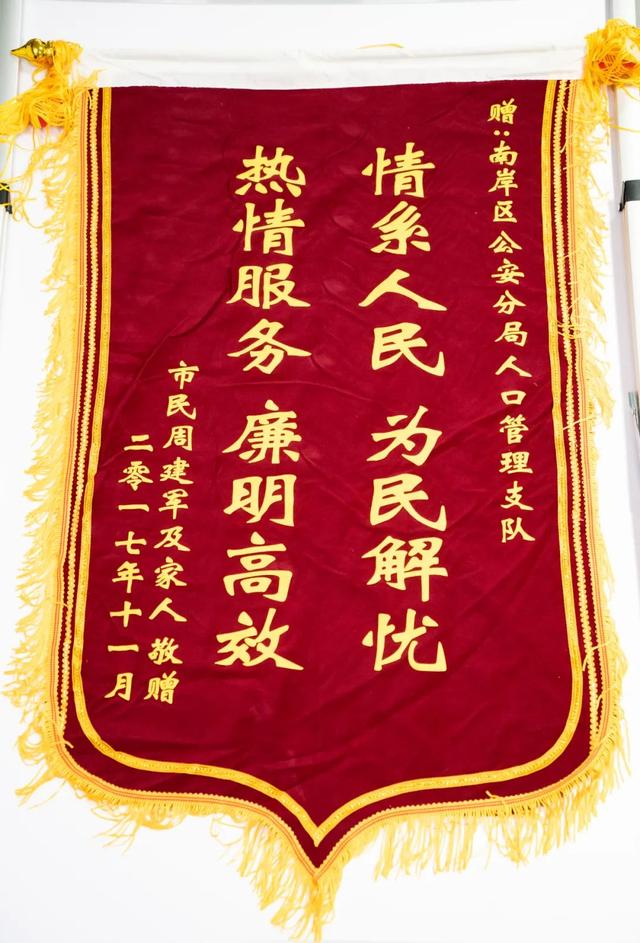 赠:南岸区公安分局人口管理支队
情系人民 为民解忧
热情服务 廉明高效
市民周建军及家人 敬赠
二零一七年十一月